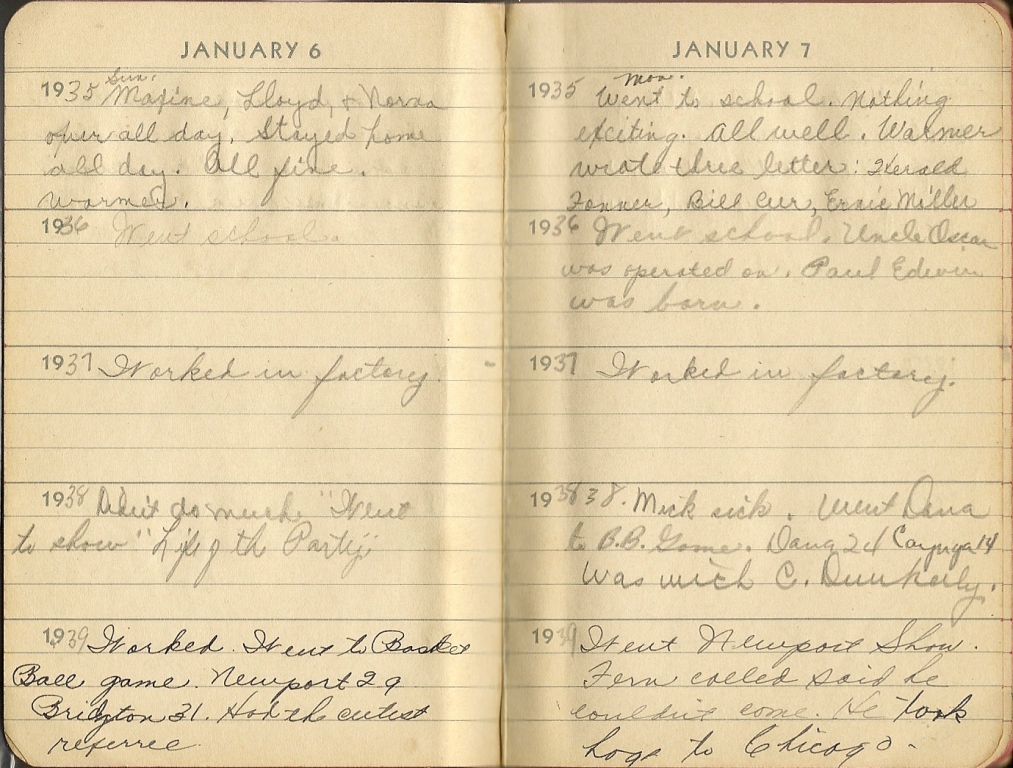 JANUARY 6
1935 Sun. Maxine, Lloyd, & Norma
over all day. Stayed home
all day. All fine.
Warmer.
1936 Went school.
1937 Worked in factory.
1938 Didn't do much. "Went
to show" "Life of the Party"
1939 Worked. Went to Basket
Ball game. Newport 29
Bridgton 31. Had the cutest
referree
JANUARY 7
1935 Mon. Went to school. Nothing
exciting. All well. Warmer
wrote three letter: Herald
Bill Cur, Ernie Miller
1936 Went school. Uncle Oscar
was operated on. Paul Edwin
was born.
1937 Worked in factory.
1938 38. Mick sick. Went Dana
to B.B. Game. Dana 24 Cayuga 14
Was with C. Dunkerly.
1939 Went Newport Show.
Fern called said he
couldn't come. He took
hogs to Chicago.